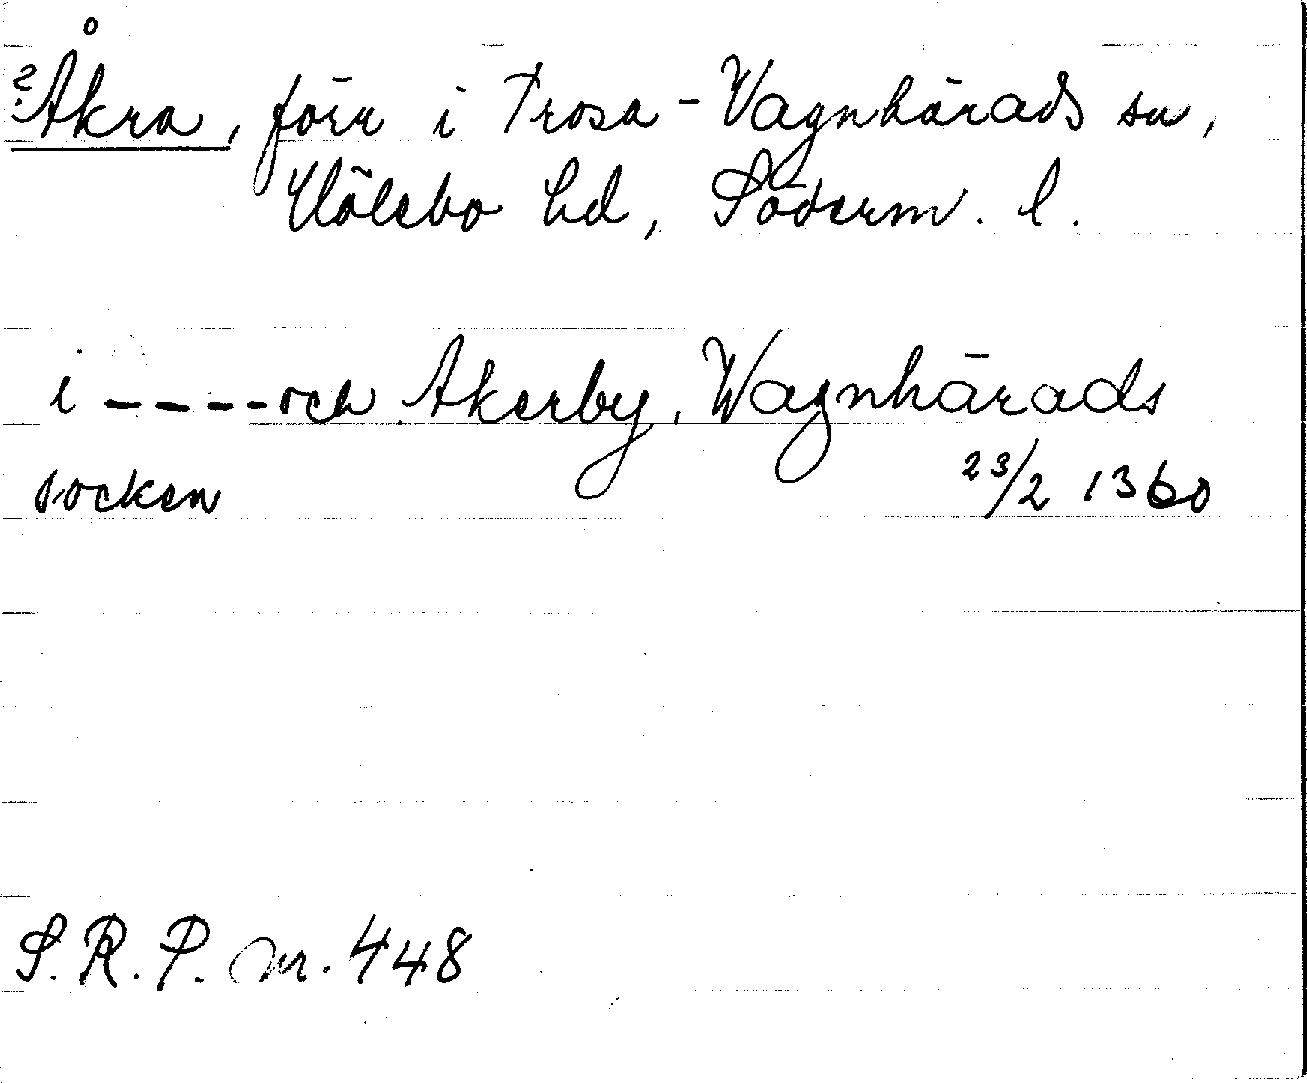 ?Åkra, förr i Trosa-Vagnhärads sn,
Hölebo hd, Söderm. l.
i ----och Akerby, Wagnhärads
socken 23/2 1360
S.R.P. nr. 448